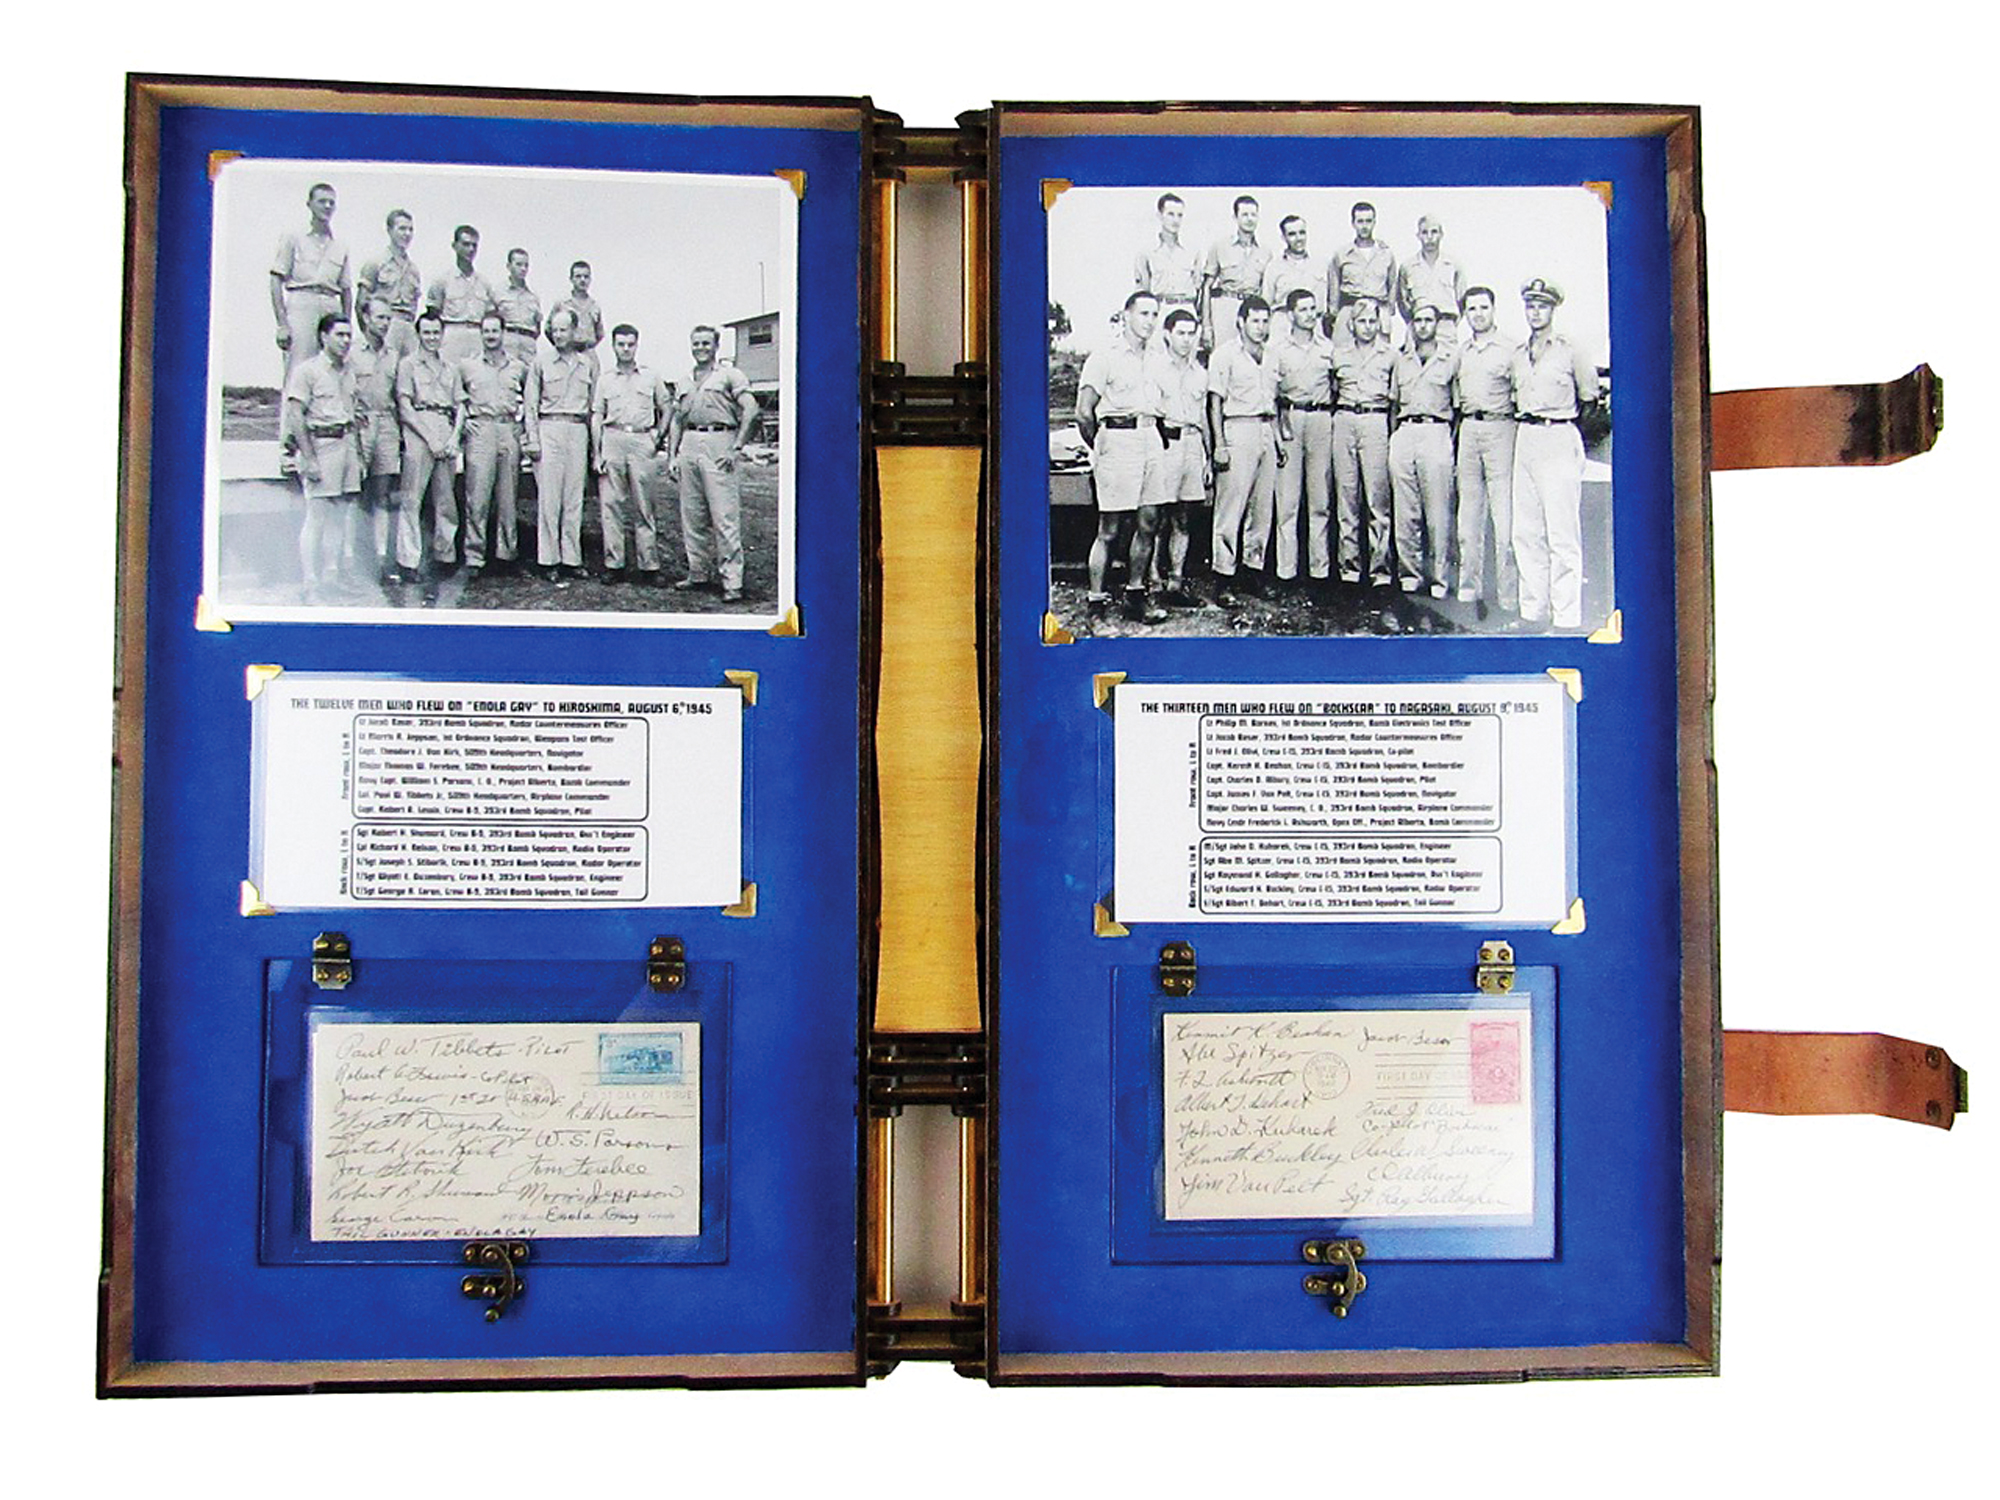 THE TWELVE MEN WHO FLEW ON "ENOLA GAY" TO HIROSHIMA, AUGUST 6th, 1945
Front row, L to R
Lt Jacob Beser, 393rd Bomb Squadron, Radar Countermeasures Officer
Lt Morris R. Jeppson, 1st Ordnance Squadron, Weapons Test Officer
Capt. Theodore J. Van Kirk, 509th Headquarters, Navigator
Major Thomas W. Ferebee, 509th Headquarters, Bombardier
Navy Capt. William S. Parsons, Project Alberta, Bomb Commander
Col. Paul W. Tibbets Jr, 509th Headquarters, Airplane Commander
Capt. Robert A. Lewis, Crew B-9, 393rd Bomb Squadron, Pilot
Back row, L to R
Sgt Robert H. Shumard, Crew B-9, 393rd Bomb Squadron, Ass't Engineer
Cpl Richard H. Nelson, Crew B-9, 393rd Bomb Squadron, Radio Operator
S/Sgt Joseph S. Stiborik, Crew B-9, 393rd Bomb Squadron, Radar Operator
T/Sgt Wyatt E. Duzenbury, Crew B-9, 393rd Bomb Squadron, Engineer
T/Sgt George R. Caron, Crew B-9, 393rd Bomb Squadron, Tail Gunner
Paul W. Tibbets - Pilot
Robert A Lewis - CoPilot
Jacob Beser 1st Lt
FIRST DAY OF ISSUE
R. H. Nelson
Wyatt Duzenbury
W. S. Parsons
Dutch Van Kirk
Joe Stiborik
Tom Ferebee
Robert R. Shumard
Morris Jeppson
George Caron
Enola Gay
TAIL GUNNER - ENOLA GAY
THE THIRTEEN MEN WHO FLEW ON "BOCKSCAR" TO NAGASAKI, AUGUST 9, 1945
Front row, L to R
Lt Philip M. Barnes, 1st Ordnance Squadron, Bomb Electronics Test Officer
Lt Jacob Beser, 393rd Bomb Squadron, Radar Countermeasures Officer
Lt Fred J. Olivi, Crew C-15, 393rd Bomb Squadron, Co-pilot
Capt. Kermit K. Beahan, Crew C-15, 393rd Bomb Squadron, Bombardier
Capt. Charles D. Albury, Crew C-15, 393rd Bomb Squadron, Pilot
Capt. James F. Van Pelt, Crew C-15, 393rd Bomb Squadron, Navigator
Major Charles W. Sweeney, C. O., 393rd Bomb Squadron, Airplane Commander
Navy Cmdr Frederick L. Ashworth, Opns Off., Project Alberta, Bomb Commander
Back row, L to R
M/Sgt John D. Kuharek, Crew C-15, 393rd Bomb Squadron, Engineer
Sgt Abe M. Spitzer, Crew C-15, 393rd Bomb Squadron, Radio Operator
Sgt Raymond H. Gallagher, Crew C-15, 393rd Bomb Squadron, Ass't Engineer
S/Sgt Edward K. Buckley, Crew C-15, 393rd Bomb Squadron, Radar Operator
S/Sgt Albert T. Dehart, Crew C-15, 393rd Bomb Squadron, Tail Gunner
Kermit K. Beahan
Jacob Beser
Abe Spitzer
F. L. Ashworth
FIRST DAY OF
Albert T. Dehart
Fred J. Olivi
Co-pilot "Bockscar"
John D. Kuharek
Kenneth Buckley
Charles W Sweeney
CD Albury
Jim Van Pelt
Sgt. Ray Gallagher